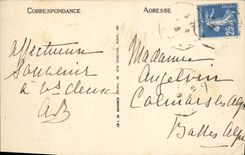 CORRESPONDANCE
ADRESSE
affectueux
Souvenir
à vs deux
AB
Madame
Angelvin
Colmars les Alpes
Basses Alpes
25